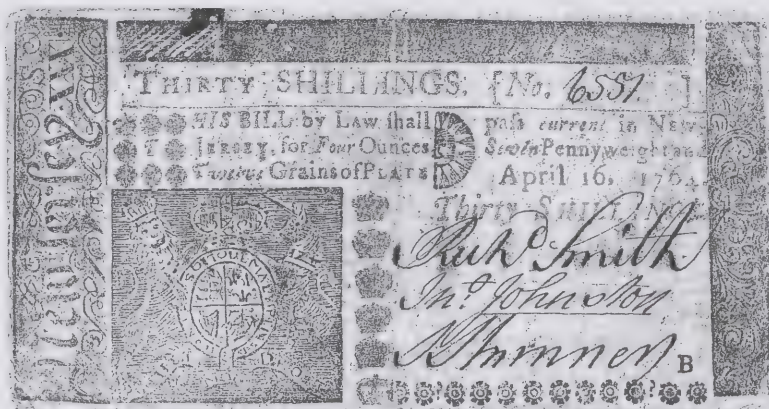 THIRTY SHILLINGS. [No. 6551. ]
THIS BILL by LAW shall pass current in NEW
JERSEY, for Four Ounces Seven Pennyweight and
Twelve Grains of PLATE April 16, 1764.
Thirty SHILLINGS
Richd Smith
Jno Johnston
B